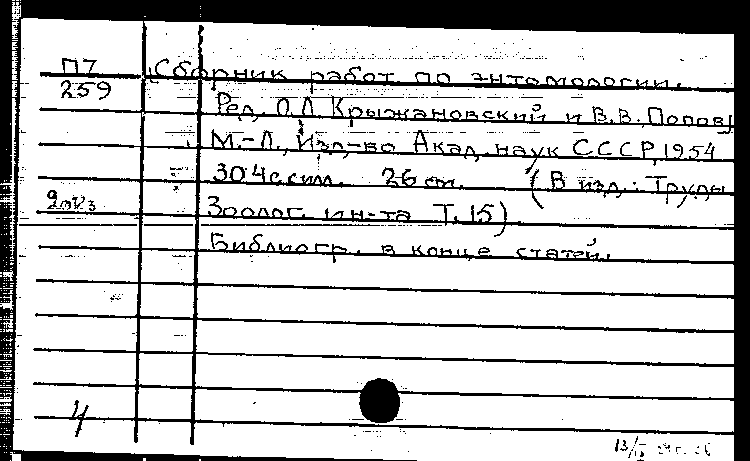 П7
259
Сборник работ по энтомологии.
Ред. О.Л. Крыжановский и В.В. Попов
М.-Л., Изд-во Акад. наук СССР, 1954
304 с силл. 26 см. (В изд.: Труды
Зоолог. ин-та Т. 15).
Библиогр. в конце статей.
4
13/